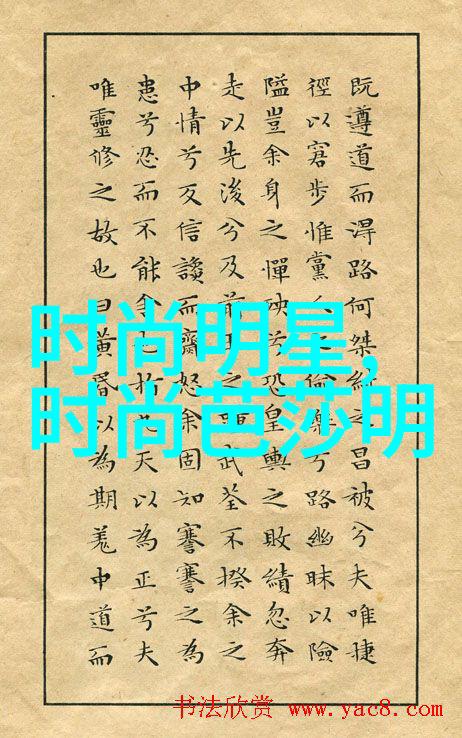 既遵道而淂路何桀紂之昌被兮夫唯捷
徑以窘步惟黨人偷樂兮路幽昧以險
隘豈余身之憚殃兮恐皇輿之敗績忽奔
走以先後兮及前王之武荃不揆余之
中情兮反信讒而齋怒余固知謇謇之為
患兮忍而不能舍也指天以為正兮夫
唯靈修之故也曰黃昏以為期羌中道而
时尚明星,
时尚芭莎明
书法欣赏 www.yac8.com